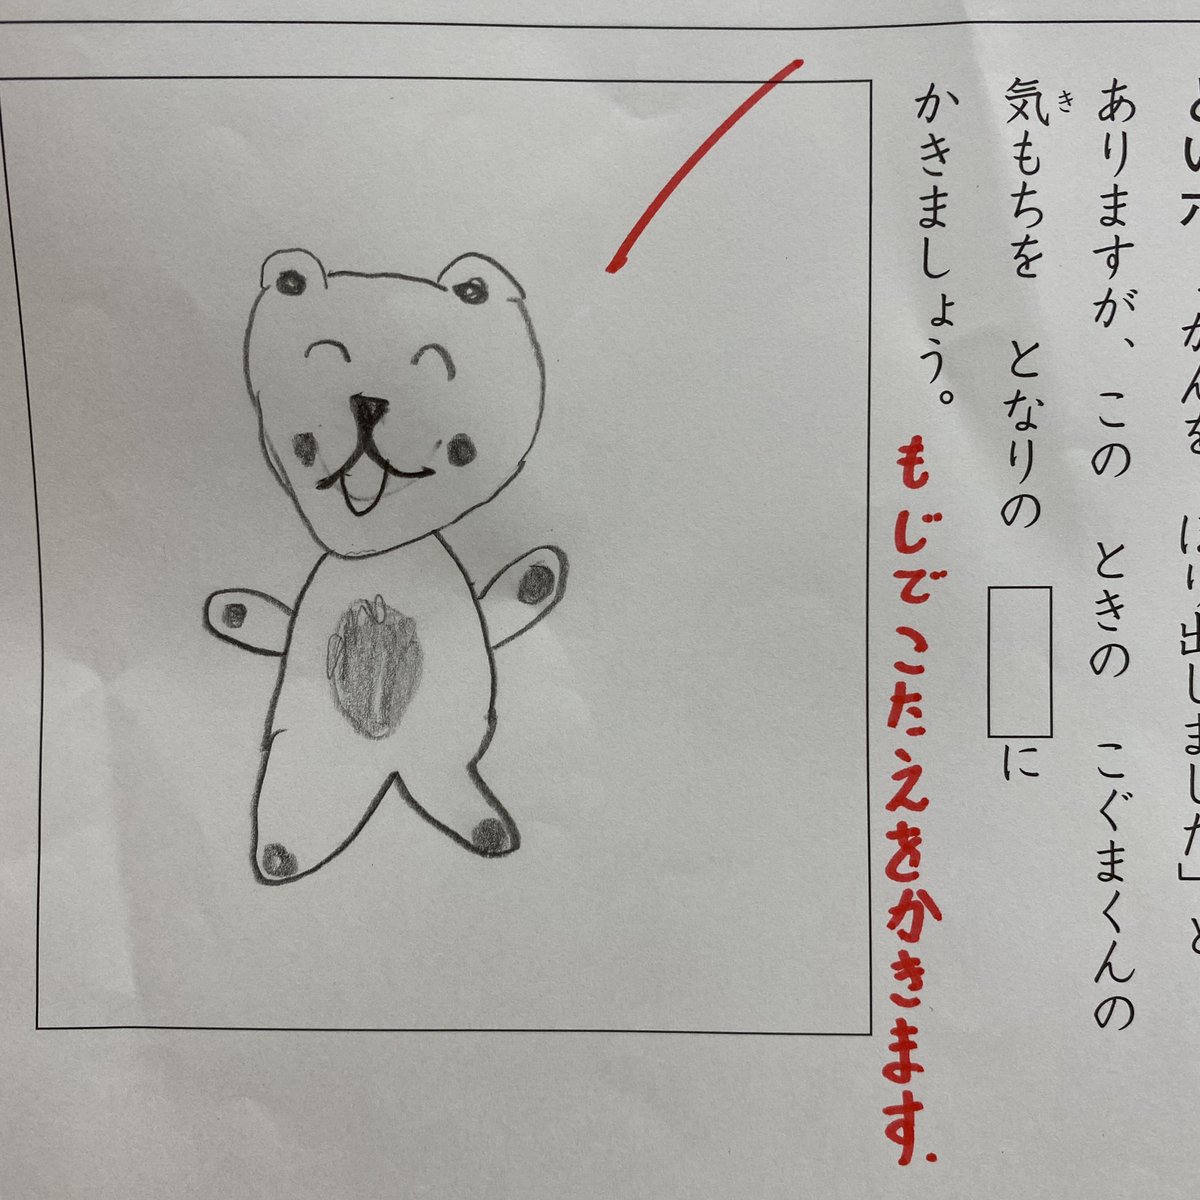 出しました」と
ありますが、この ときの こぐまくんの
気もちを となりの に
き
かきましょう。
もじでこたえをかきます.